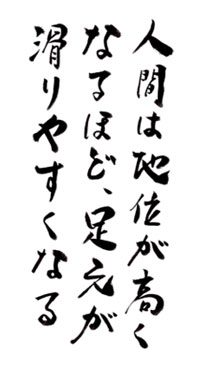 人間は地位が高く
なるほど、足元が
滑りやすくなる